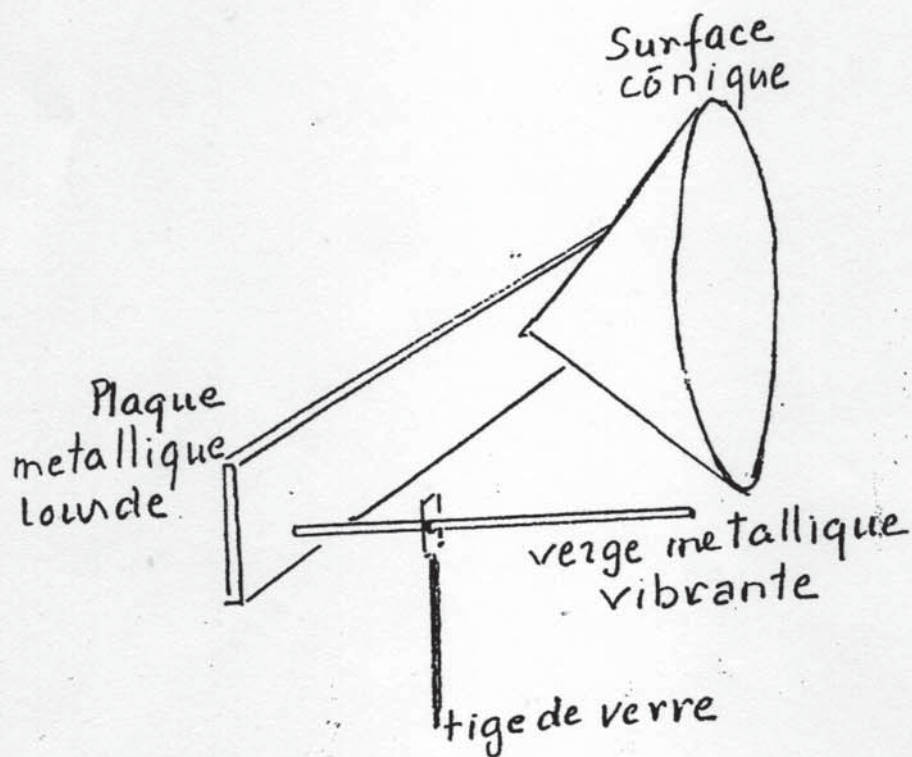 Surface
cōnique
Plaque
metallique
lourde
verge metallique
vibrante
tige de verre